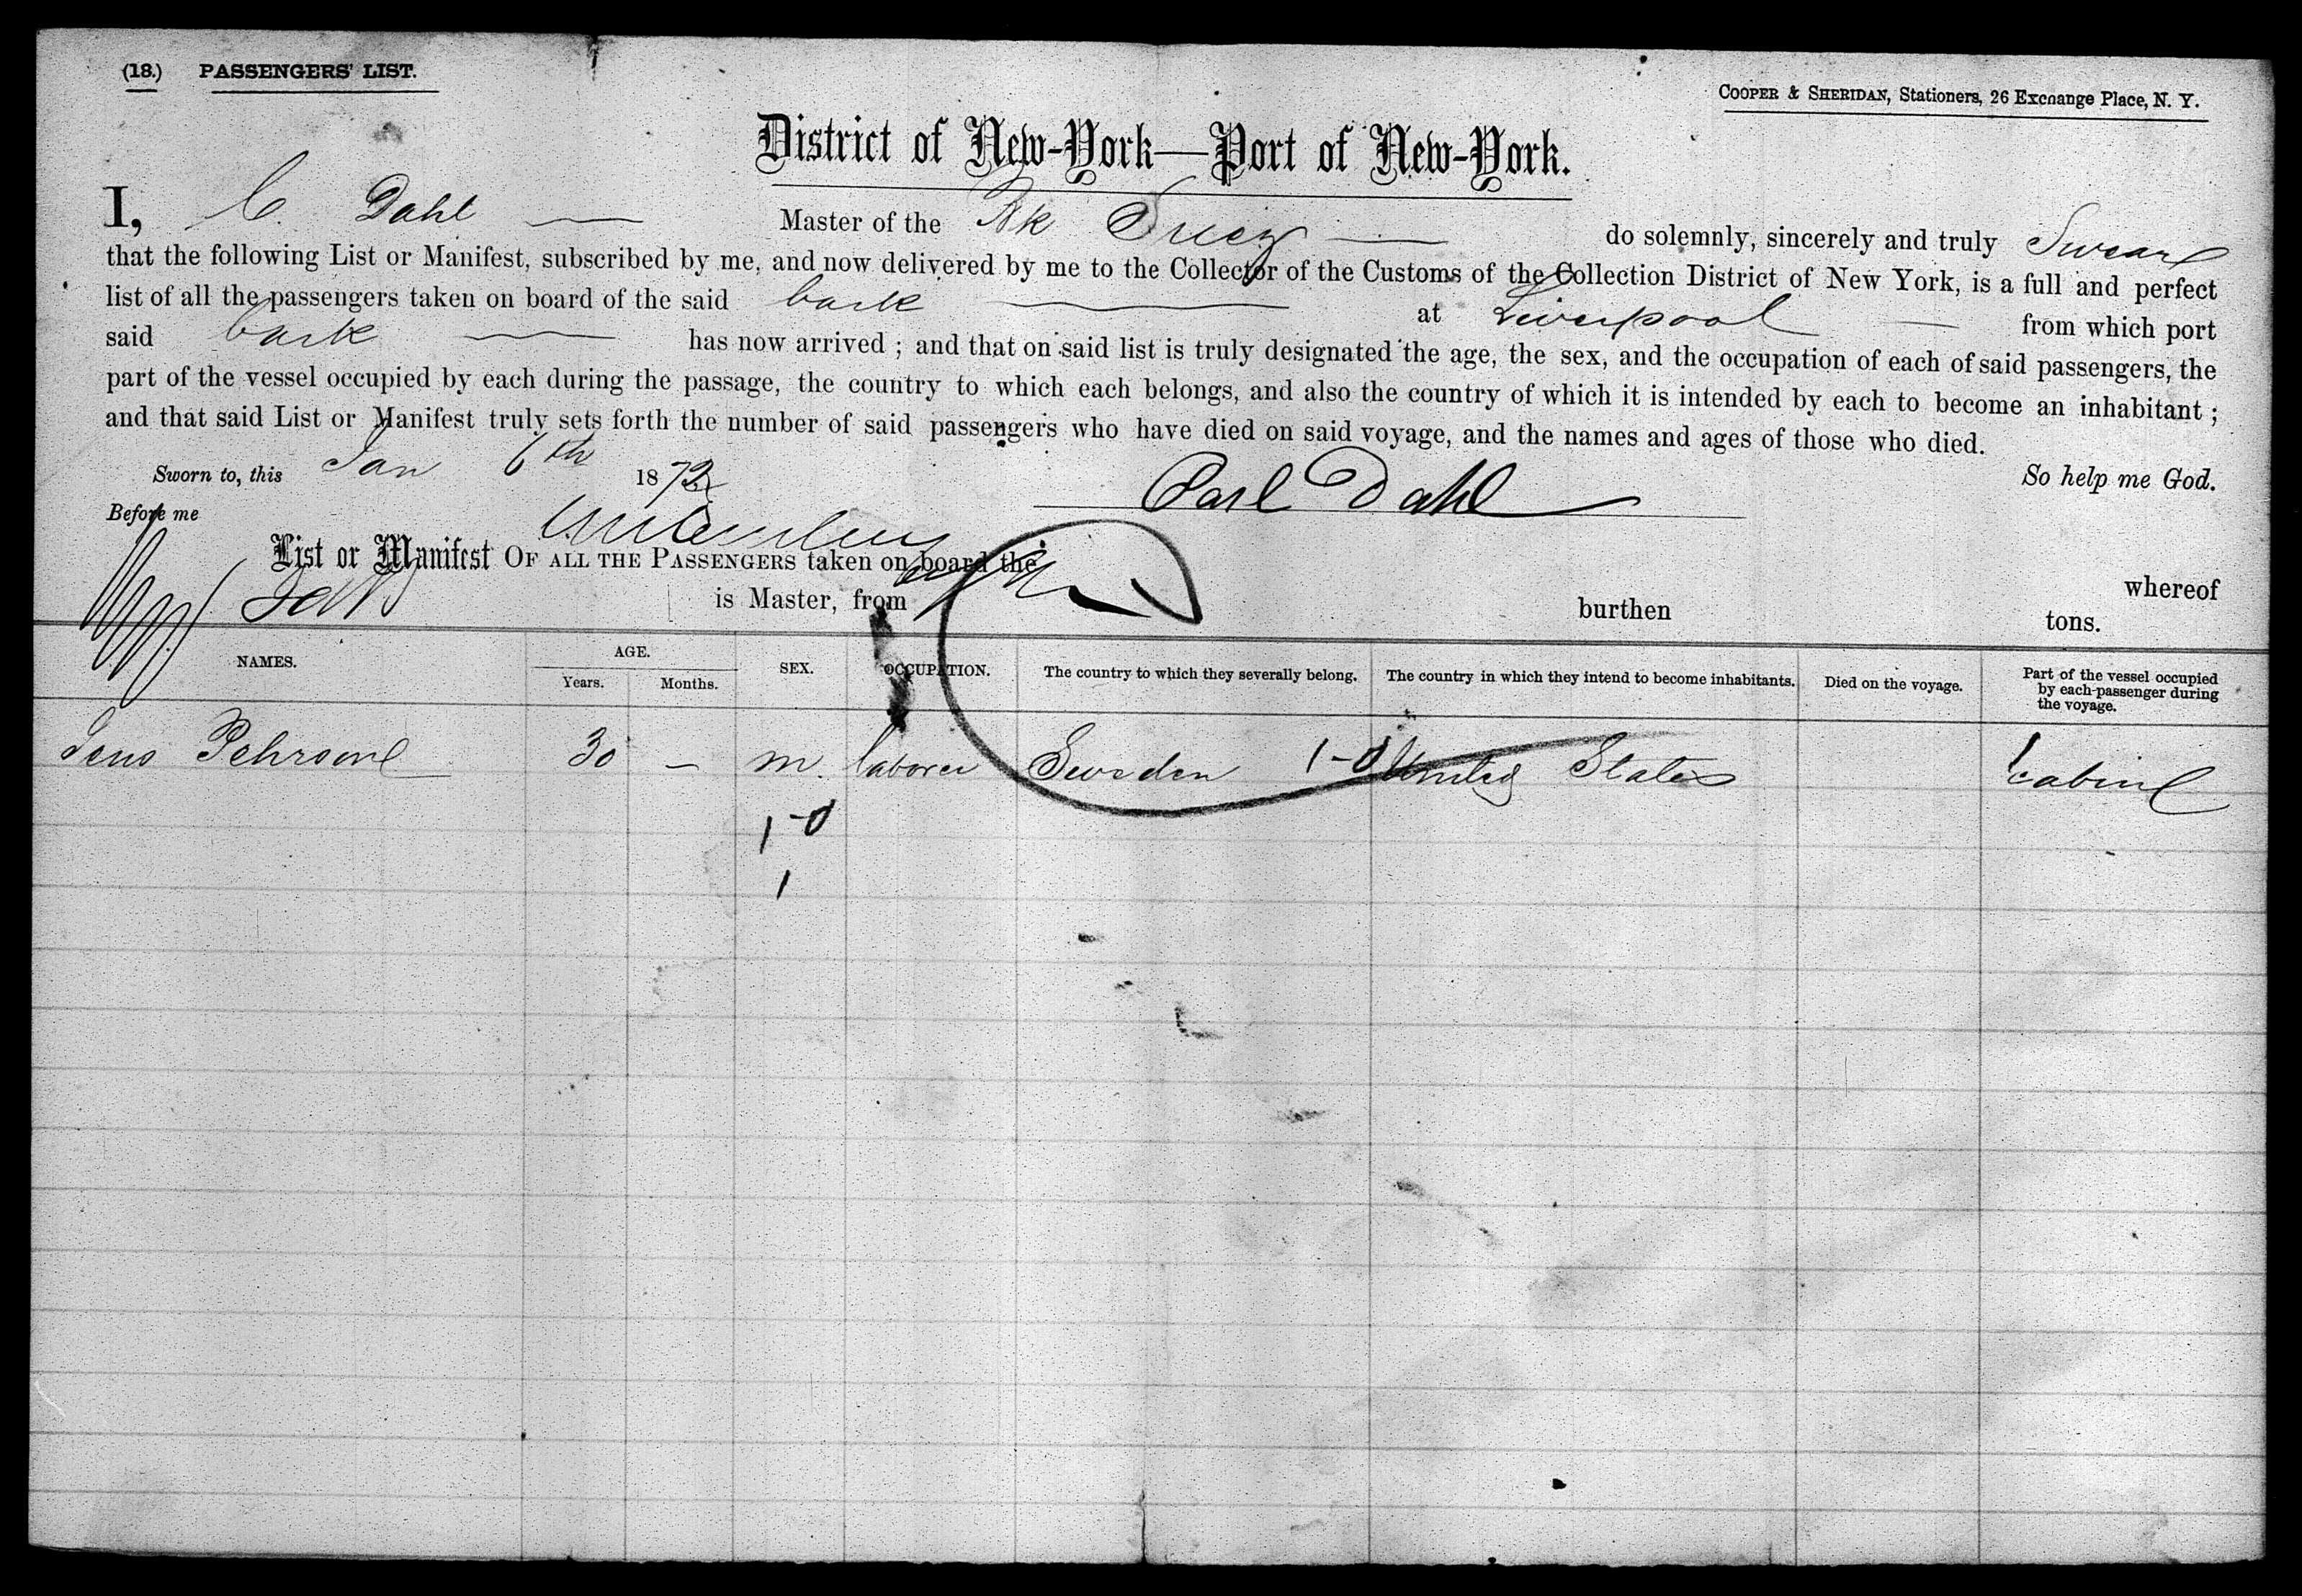 (18.) PASSENGERS' LIST.
COOPER & SHERIDAN, Stationers, 26 Exchange Place, N. Y.
District of New-York—Port of New-York.
I, C. Dahl Master of the Bk Suez do solemnly, sincerely and truly Swear
that the following List or Manifest, subscribed by me, and now delivered by me to the Collector of the Customs of the Collection District of New York, is a full and perfect
list of all the passengers taken on board of the said bark at Liverpool from which port
said bark has now arrived ; and that on said list is truly designated the age, the sex, and the occupation of each of said passengers, the
part of the vessel occupied by each during the passage, the country to which each belongs, and also the country of which it is intended by each to become an inhabitant ;
and that said List or Manifest truly sets forth the number of said passengers who have died on said voyage, and the names and ages of those who died.
Sworn to, this Jan 6th 1872 So help me God.
Carl Dahl
Before me
List or Manifest OF ALL THE PASSENGERS taken on board the whereof
is Master, from burthen tons.
NAMES. AGE. Years. Months. SEX. OCCUPATION. The country to which they severally belong. The country in which they intend to become inhabitants. Died on the voyage. Part of the vessel occupied by each passenger during the voyage.
Jens Pehrson 30 – m. laborer Sweden 1-0 United States 1 cabin
1-0
1